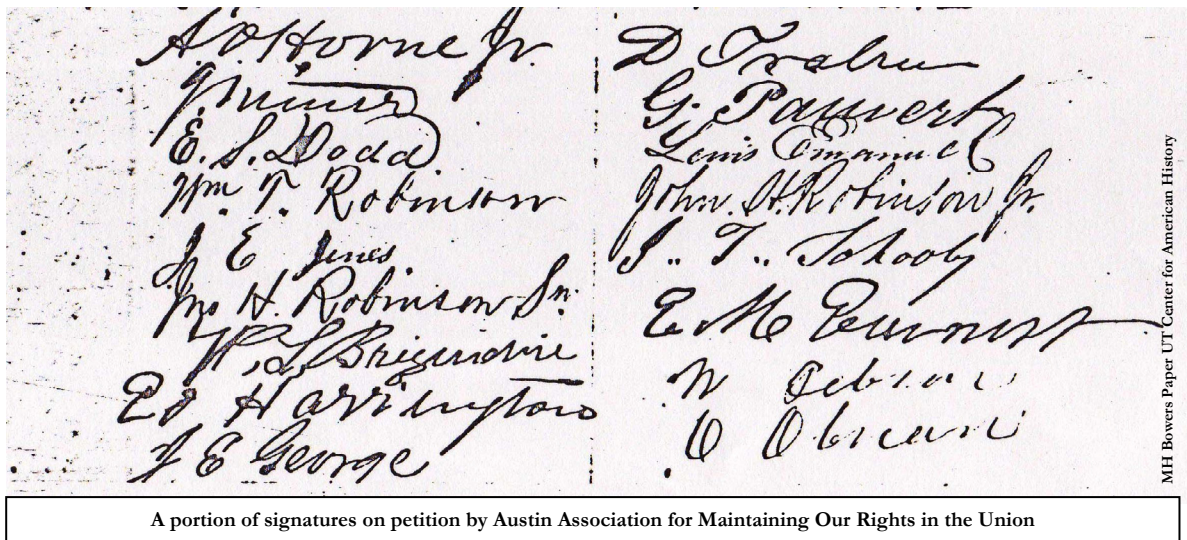 A. O. Horne Jr.
E. S. Dodd
Wm. T. Robinson
J E Jones
Jno H. Robinson Sn.
W. S. Brigendine
Ed Harrington
J E George
D
G. Pauvert
Lewis Emanuel
John. H. Robinson Jr.
S.. T.. Schooly
E. M.
W
O Obrien
MH Bowers Paper UT Center for American History
A portion of signatures on petition by Austin Association for Maintaining Our Rights in the Union